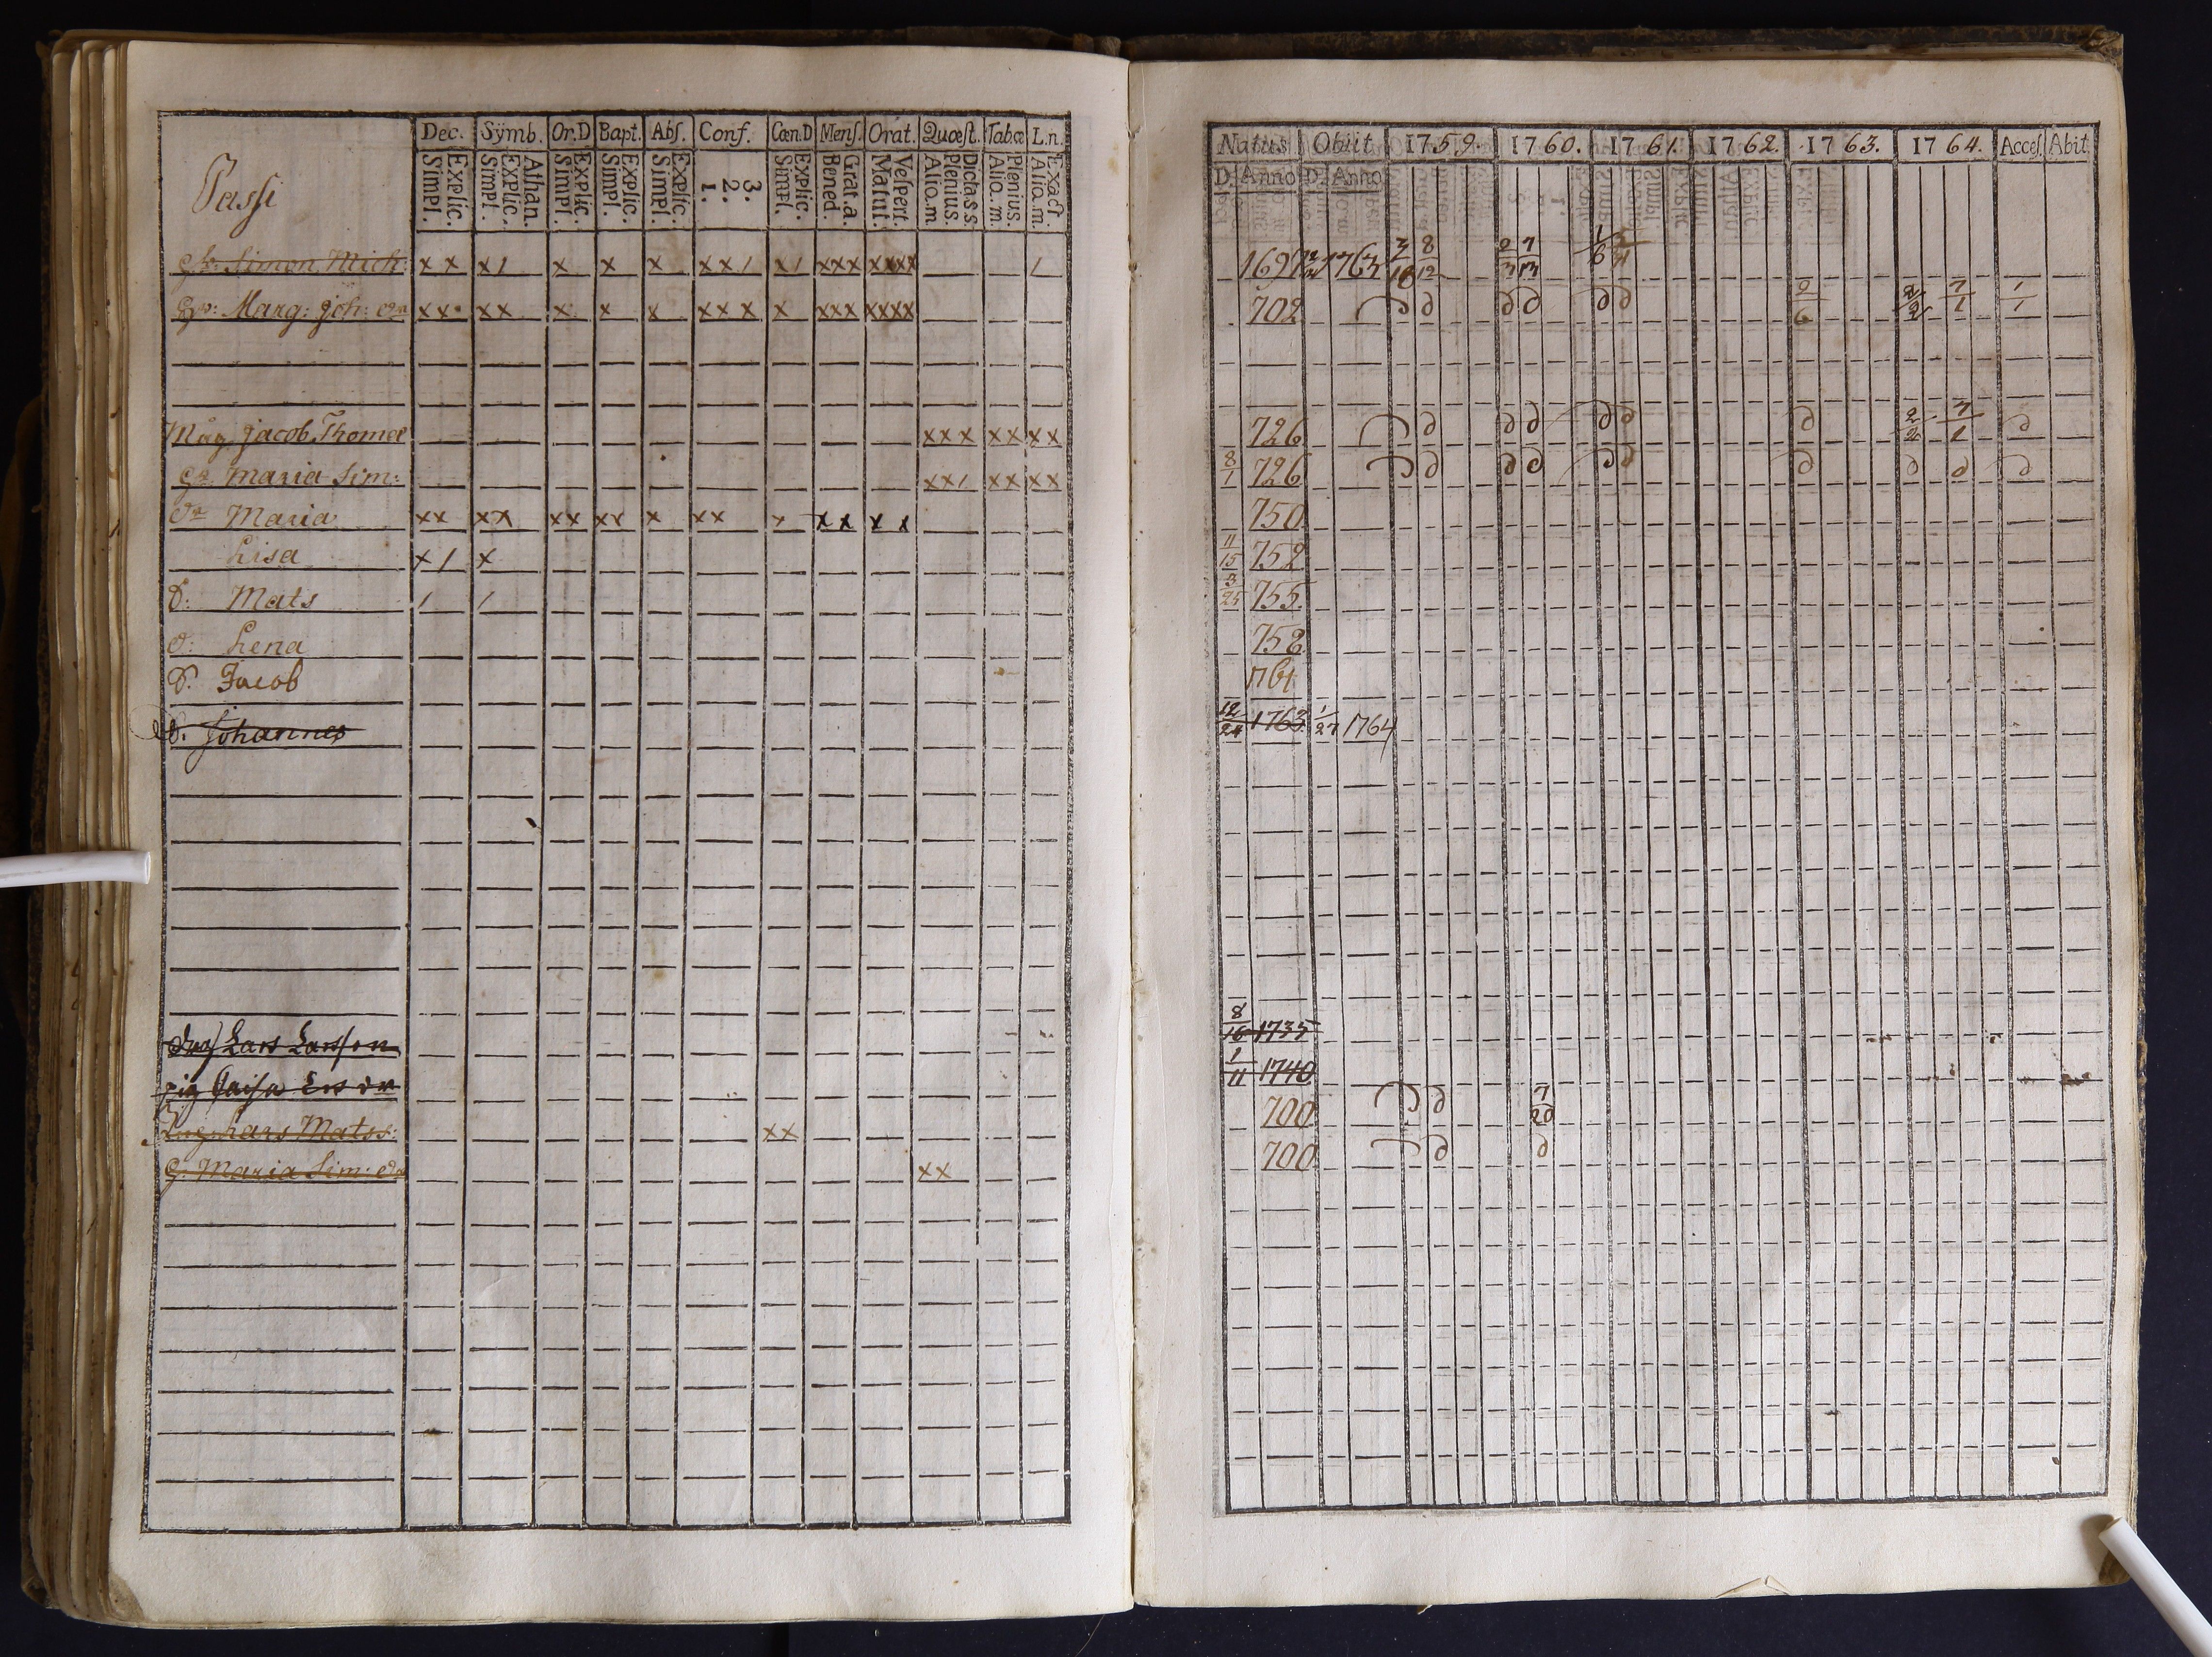 Dec. Sÿmb. Or.D Bapt. Abſ. Conf. Cœn.D Menſ. Orat. Quœſt. Tabœ L.n.
Explic. Simpl. Athan. Explic. Simpl. Explic. Simpl. Explic. Simpl. Explic. Simpl. 3. 2. 1. Explic. Simpl. Grat.a. Bened. Veſpert. Matut. Dicta.s.s. Plenius. Alio.m. Plenius. Alio.m. Exact Alio.m.
Passi
Simon Mich: x x x / x x x x x / x / xxx xxxx /
Marg: Joh: xx xx x x x xx x x xxx xxxx
Måg Jacob Thomæ xx x xx xx
Maria Sim: xx / xx xx
Maria xx xx xx xx x xx x x x x x
Lisa x / x
D: Mats / /
D: Lena
D. Jacob
D. Johannes
Lars Larsson
pig Caisa
Lars Matss: xx
Maria Sim: xx
Natus Obiit 1759. 1760. 1761. 1762. 1763. 1764. Acceſ. Abit
D. Anno D. Anno
1697 1763 8/12
702 7/1 1/1
726 2/2 7/1
8/1 726
750
11/15 752
3/25 755.
758
1761
12/24 1763 1/27 1764
8/16 1735
1/11 1740
700 7/20
700